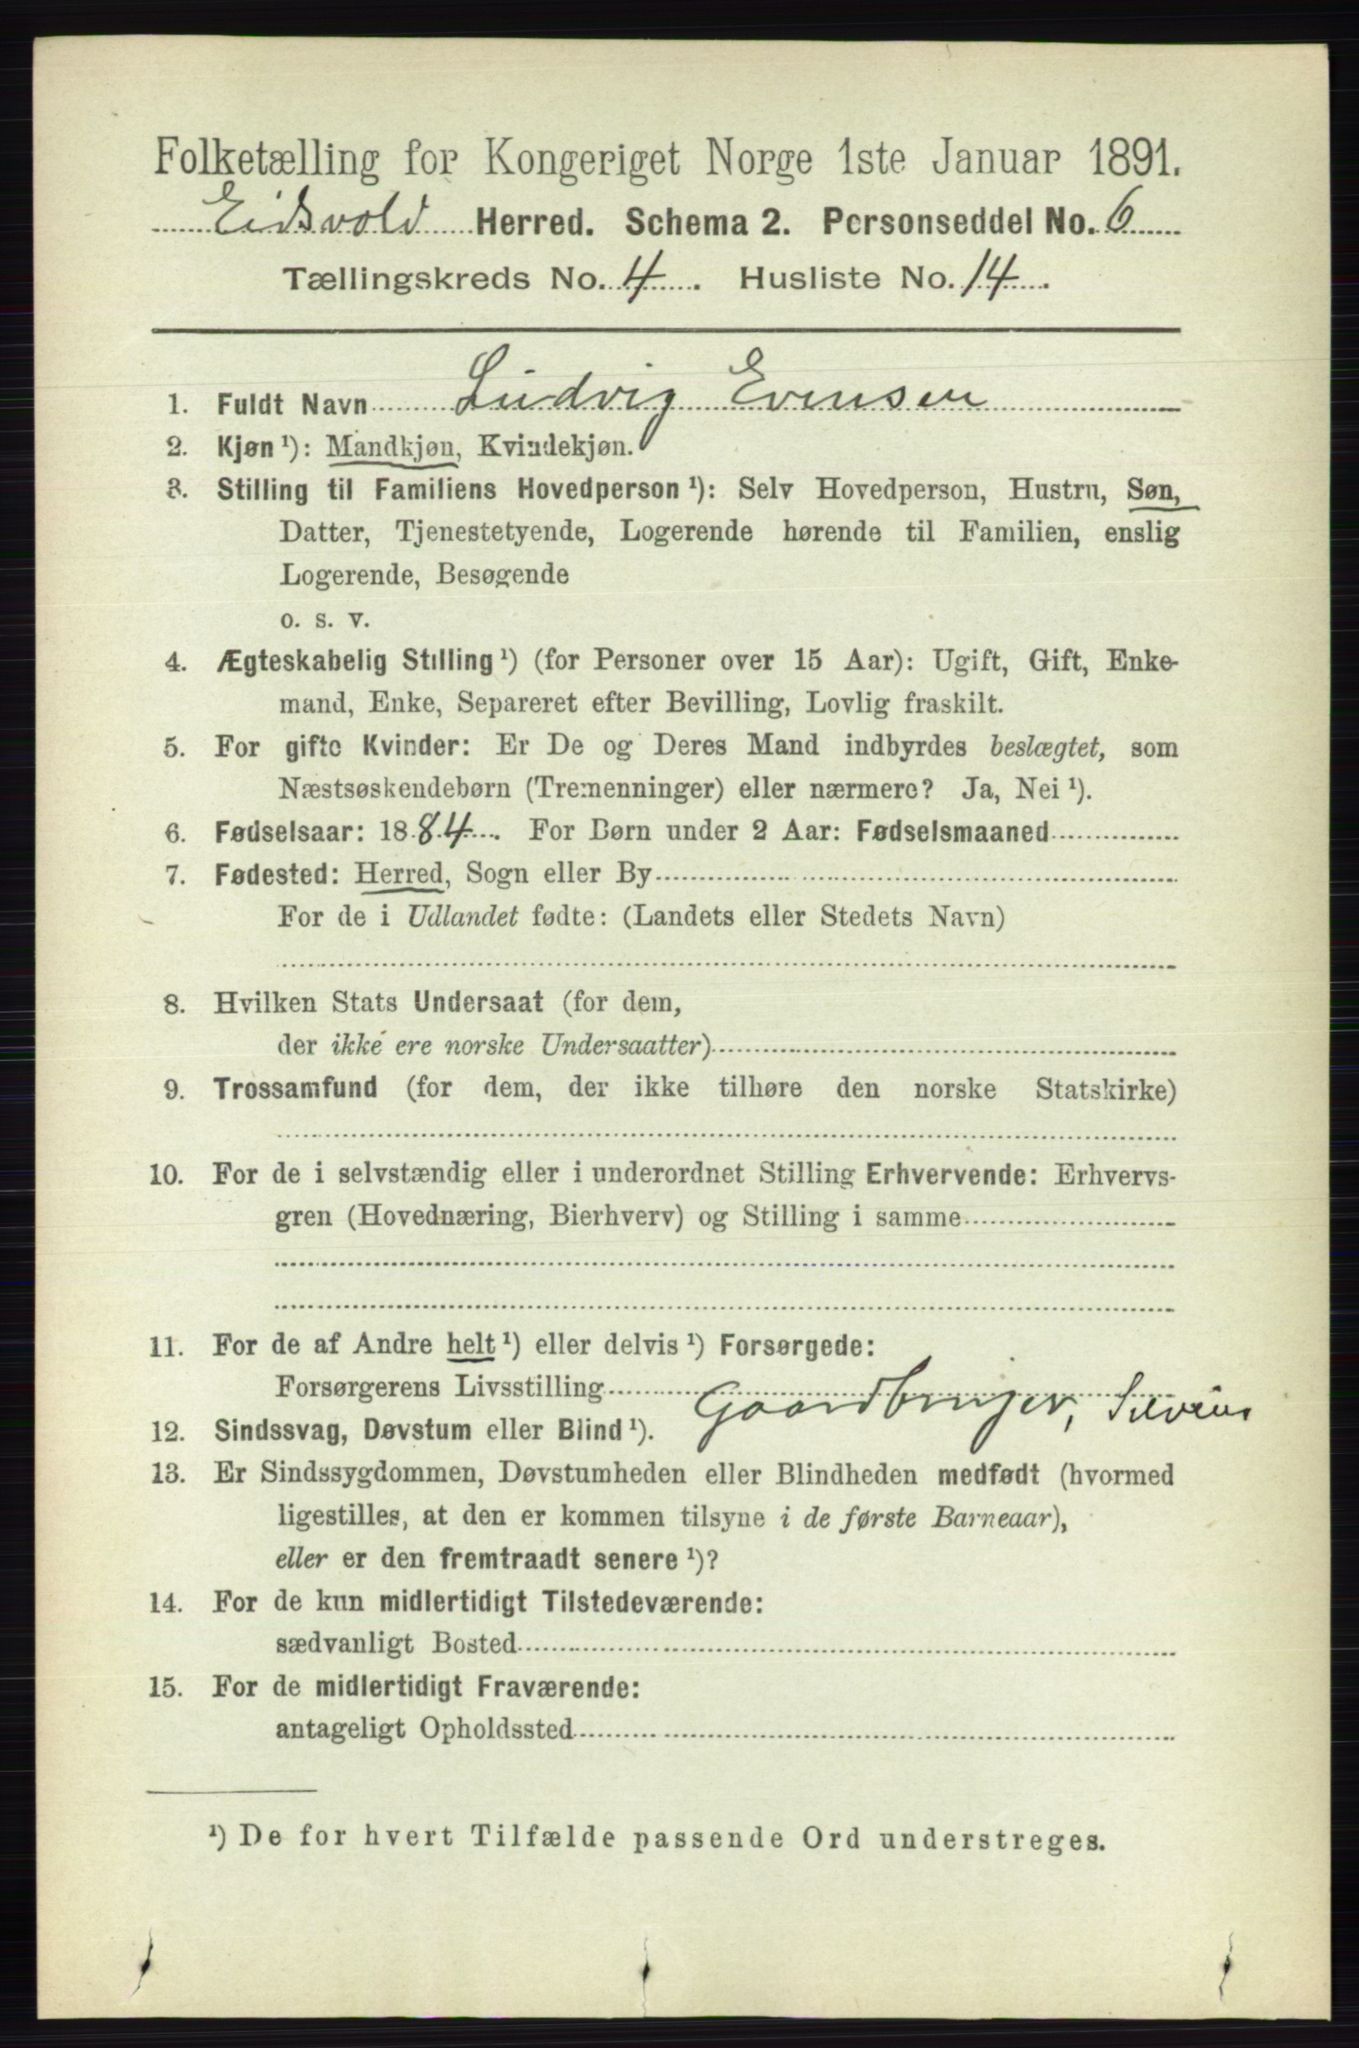 Folketælling for Kongeriget Norge 1ste Januar 1891.
Eidsvold Herred. Schema 2. Personseddel No. 6
Tællingskreds No. 4. Husliste No. 14.
1. Fuldt Navn Ludvig Evensen
2. Kjøn ¹): Mandkjøn, Kvindekjøn.
3. Stilling til Familiens Hovedperson ¹): Selv Hovedperson, Hustru, Søn,
Datter, Tjenestetyende, Logerende hørende til Familien, enslig
Logerende, Besøgende
o. s. v.
4. Ægteskabelig Stilling ¹) (for Personer over 15 Aar): Ugift, Gift, Enke-
mand, Enke, Separeret efter Bevilling, Lovlig fraskilt.
5. For gifte Kvinder: Er De og Deres Mand indbyrdes beslægtet, som
Næstsøskendebørn (Tremenninger) eller nærmere? Ja, Nei ¹).
6. Fødselsaar: 1884. For Børn under 2 Aar: Fødselsmaaned
7. Fødested: Herred, Sogn eller By
For de i Udlandet fødte: (Landets eller Stedets Navn)
8. Hvilken Stats Undersaat (for dem,
der ikke ere norske Undersaatter)
9. Trossamfund (for dem, der ikke tilhøre den norske Statskirke)
10. For de i selvstændig eller i underordnet Stilling Erhvervende: Erhvervs-
gren (Hovednæring, Bierhverv) og Stilling i samme
11. For de af Andre helt ¹) eller delvis ¹) Forsørgede:
Forsørgerens Livsstilling Gaardbruger,
12. Sindssvag, Døvstum eller Blind ¹).
13. Er Sindssygdommen, Døvstumheden eller Blindheden medfødt (hvormed
ligestilles, at den er kommen tilsyne i de første Barneaar),
eller er den fremtraadt senere ¹)?
14. For de kun midlertidigt Tilstedeværende:
sædvanligt Bosted
15. For de midlertidigt Fraværende:
antageligt Opholdssted
¹) De for hvert Tilfælde passende Ord understreges.